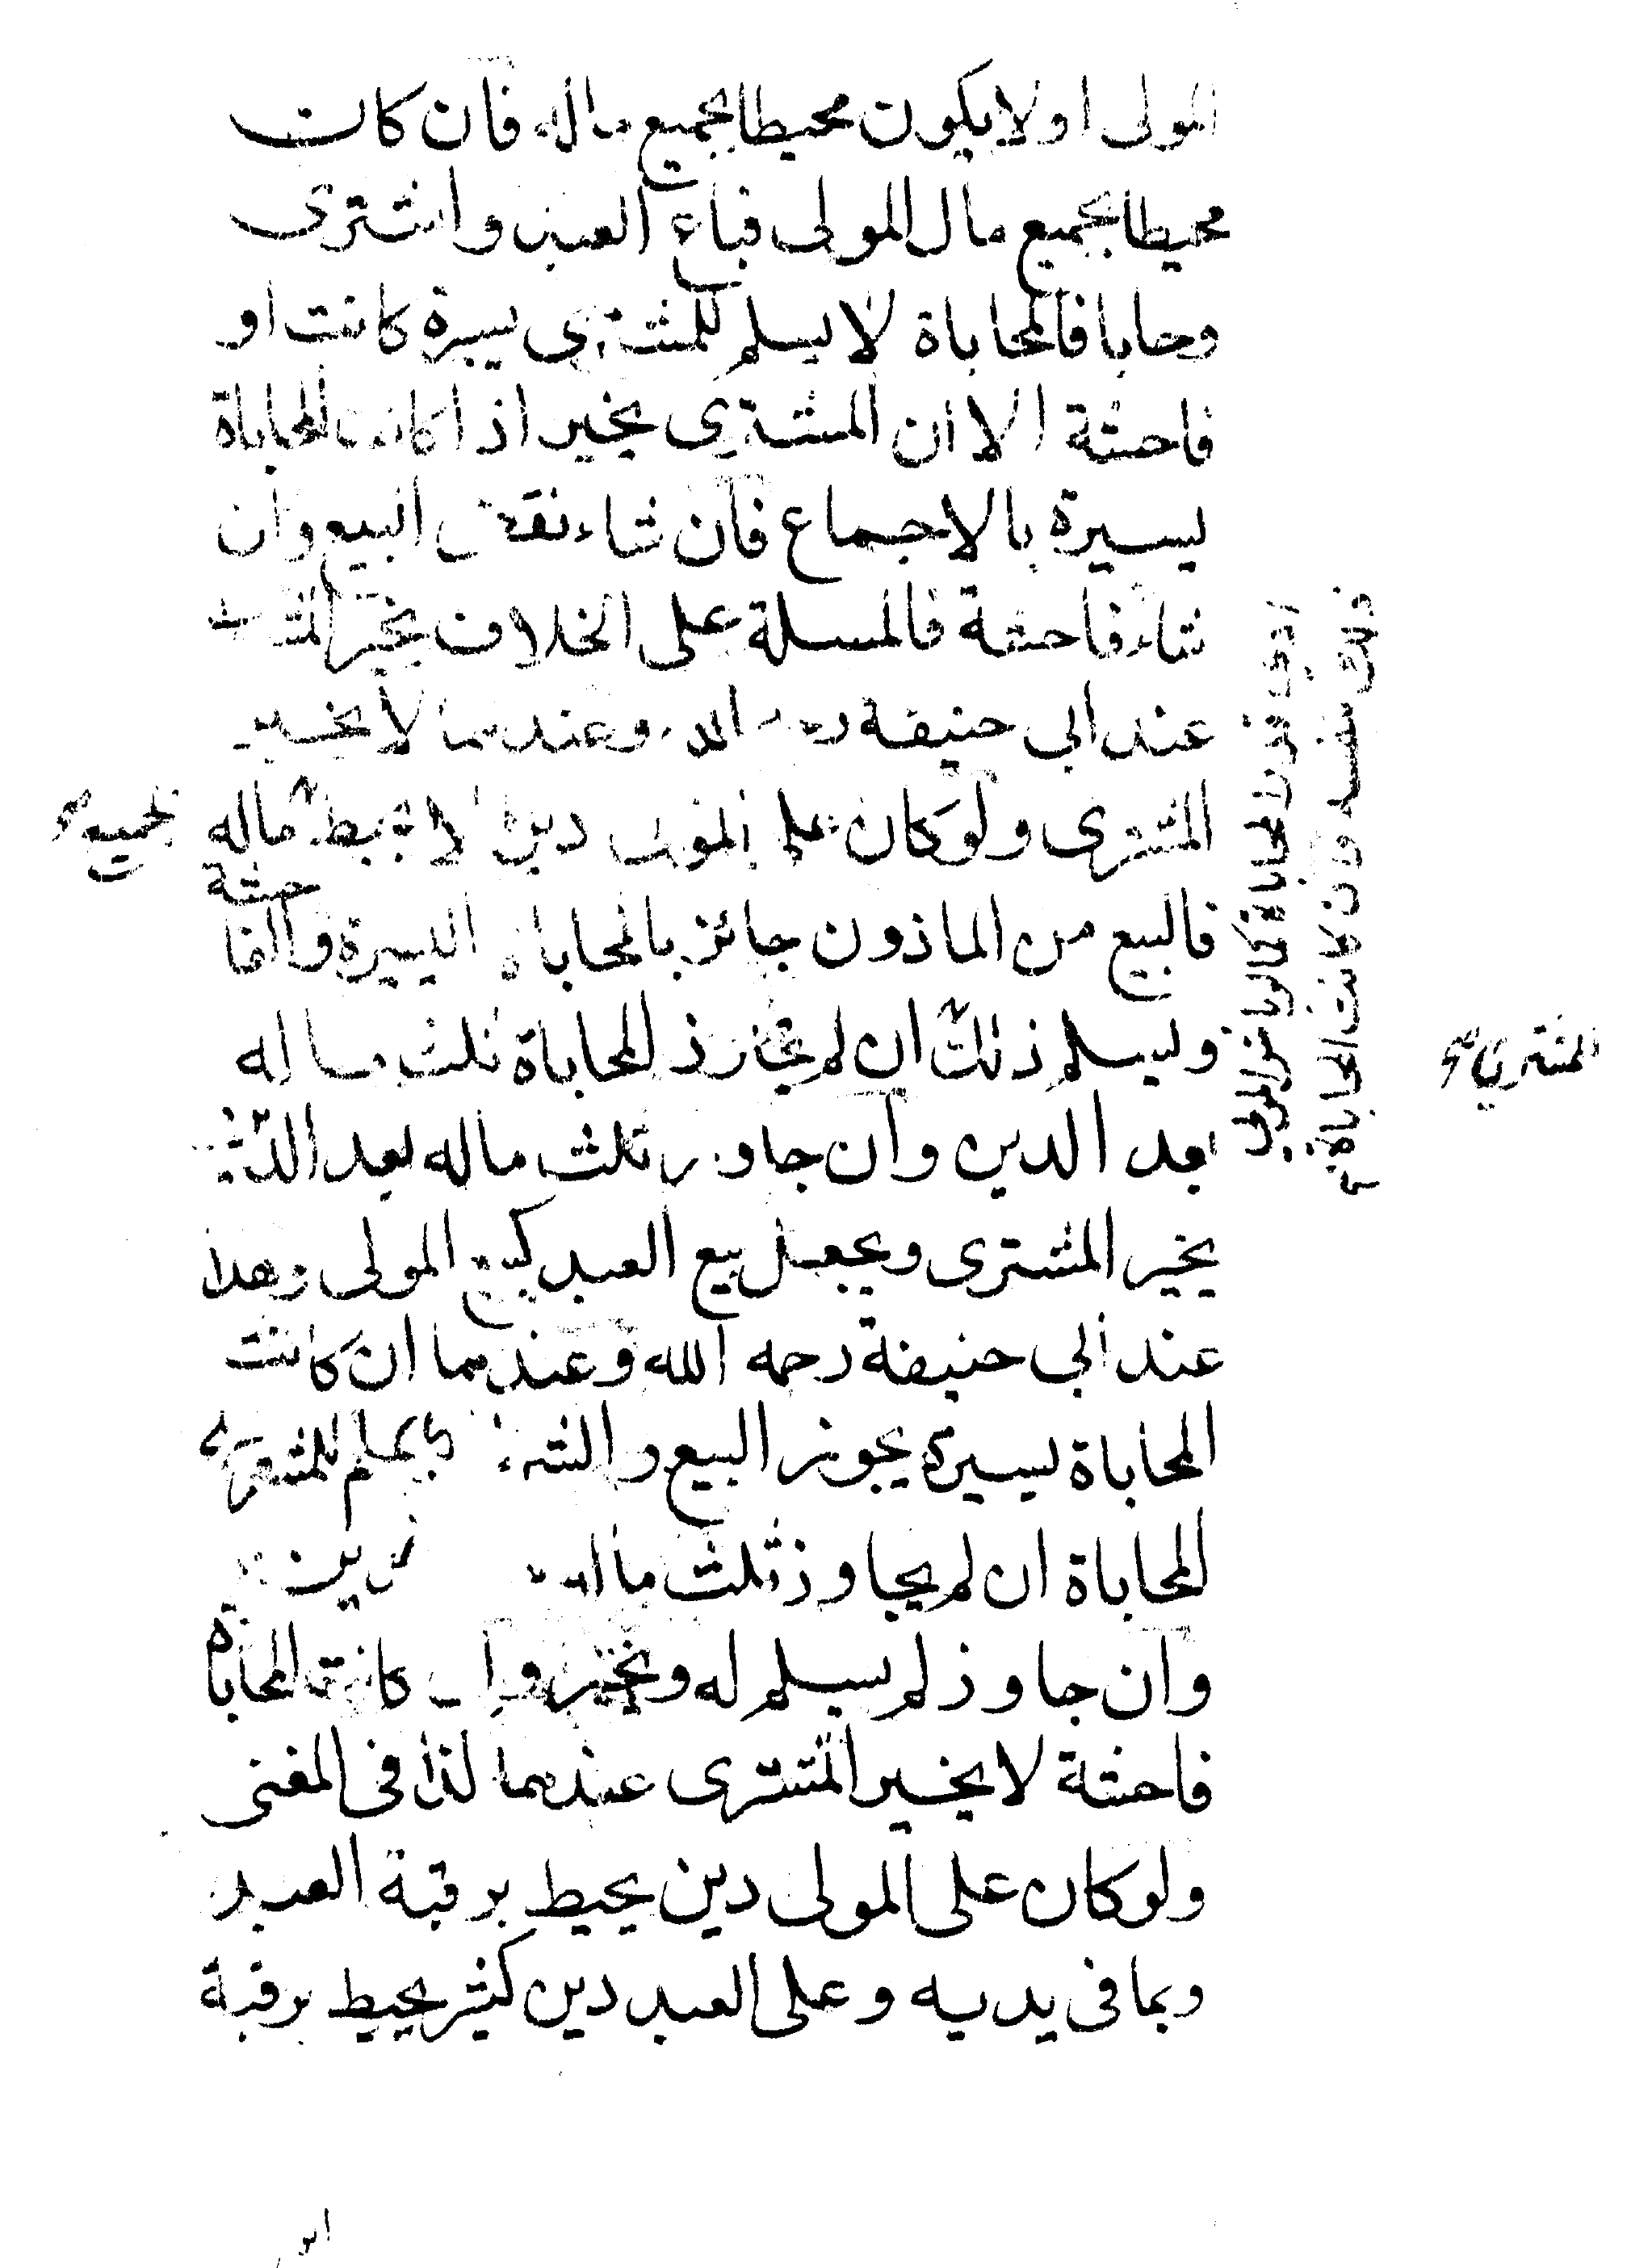 المولى او لا يكون محيطا بجميع ماله فان كان
محيطا بجميع مال المولى فباع العبد واشترى
وحابا فالمحاباة لا يسلم للمشترى يسيرة كانت او
فاحشة الا ان المشتري يخير اذا كانت المحاباة
يسيرة بالاجماع فان شاء نقض البيع وان
شاء فاحشة فالمسلة على الخلاف يخير
عند ابي حنيفة رحمه الله وعندهما لا يخير
المشترى ولو كان على المولى دين لا يحيط ماله
بجميع
فالبيع من الماذون جائز بالمحاباة اليسيرة والفا
حشة
ويسلم ذلك ان لم المحاباة ثلث ماله
المشتري
بعد الدين وان جاوز ثلث ماله بعد الدين
يخير المشترى ويجعل بيع العبد كبيع المولى وهذا
عند ابي حنيفة رحمه الله وعندهما ان كانت
المحاباة يسيرة يجوز البيع والشراء للمشترى
المحاباة ان لم يجاوز ثلث ماله
وان جاوز لم يسلم له ويخير وان كانت المحاباة
فاحشة لا يخير المشترى عندهما لذا فى المغنى
ولو كان على المولى دين يحيط برقبة العبد
وبما فى يديه وعلى العبد دين كثير يحيط برقبة
المحاباة كما لو باع المولى
بنفسه وان كانت المحاباة